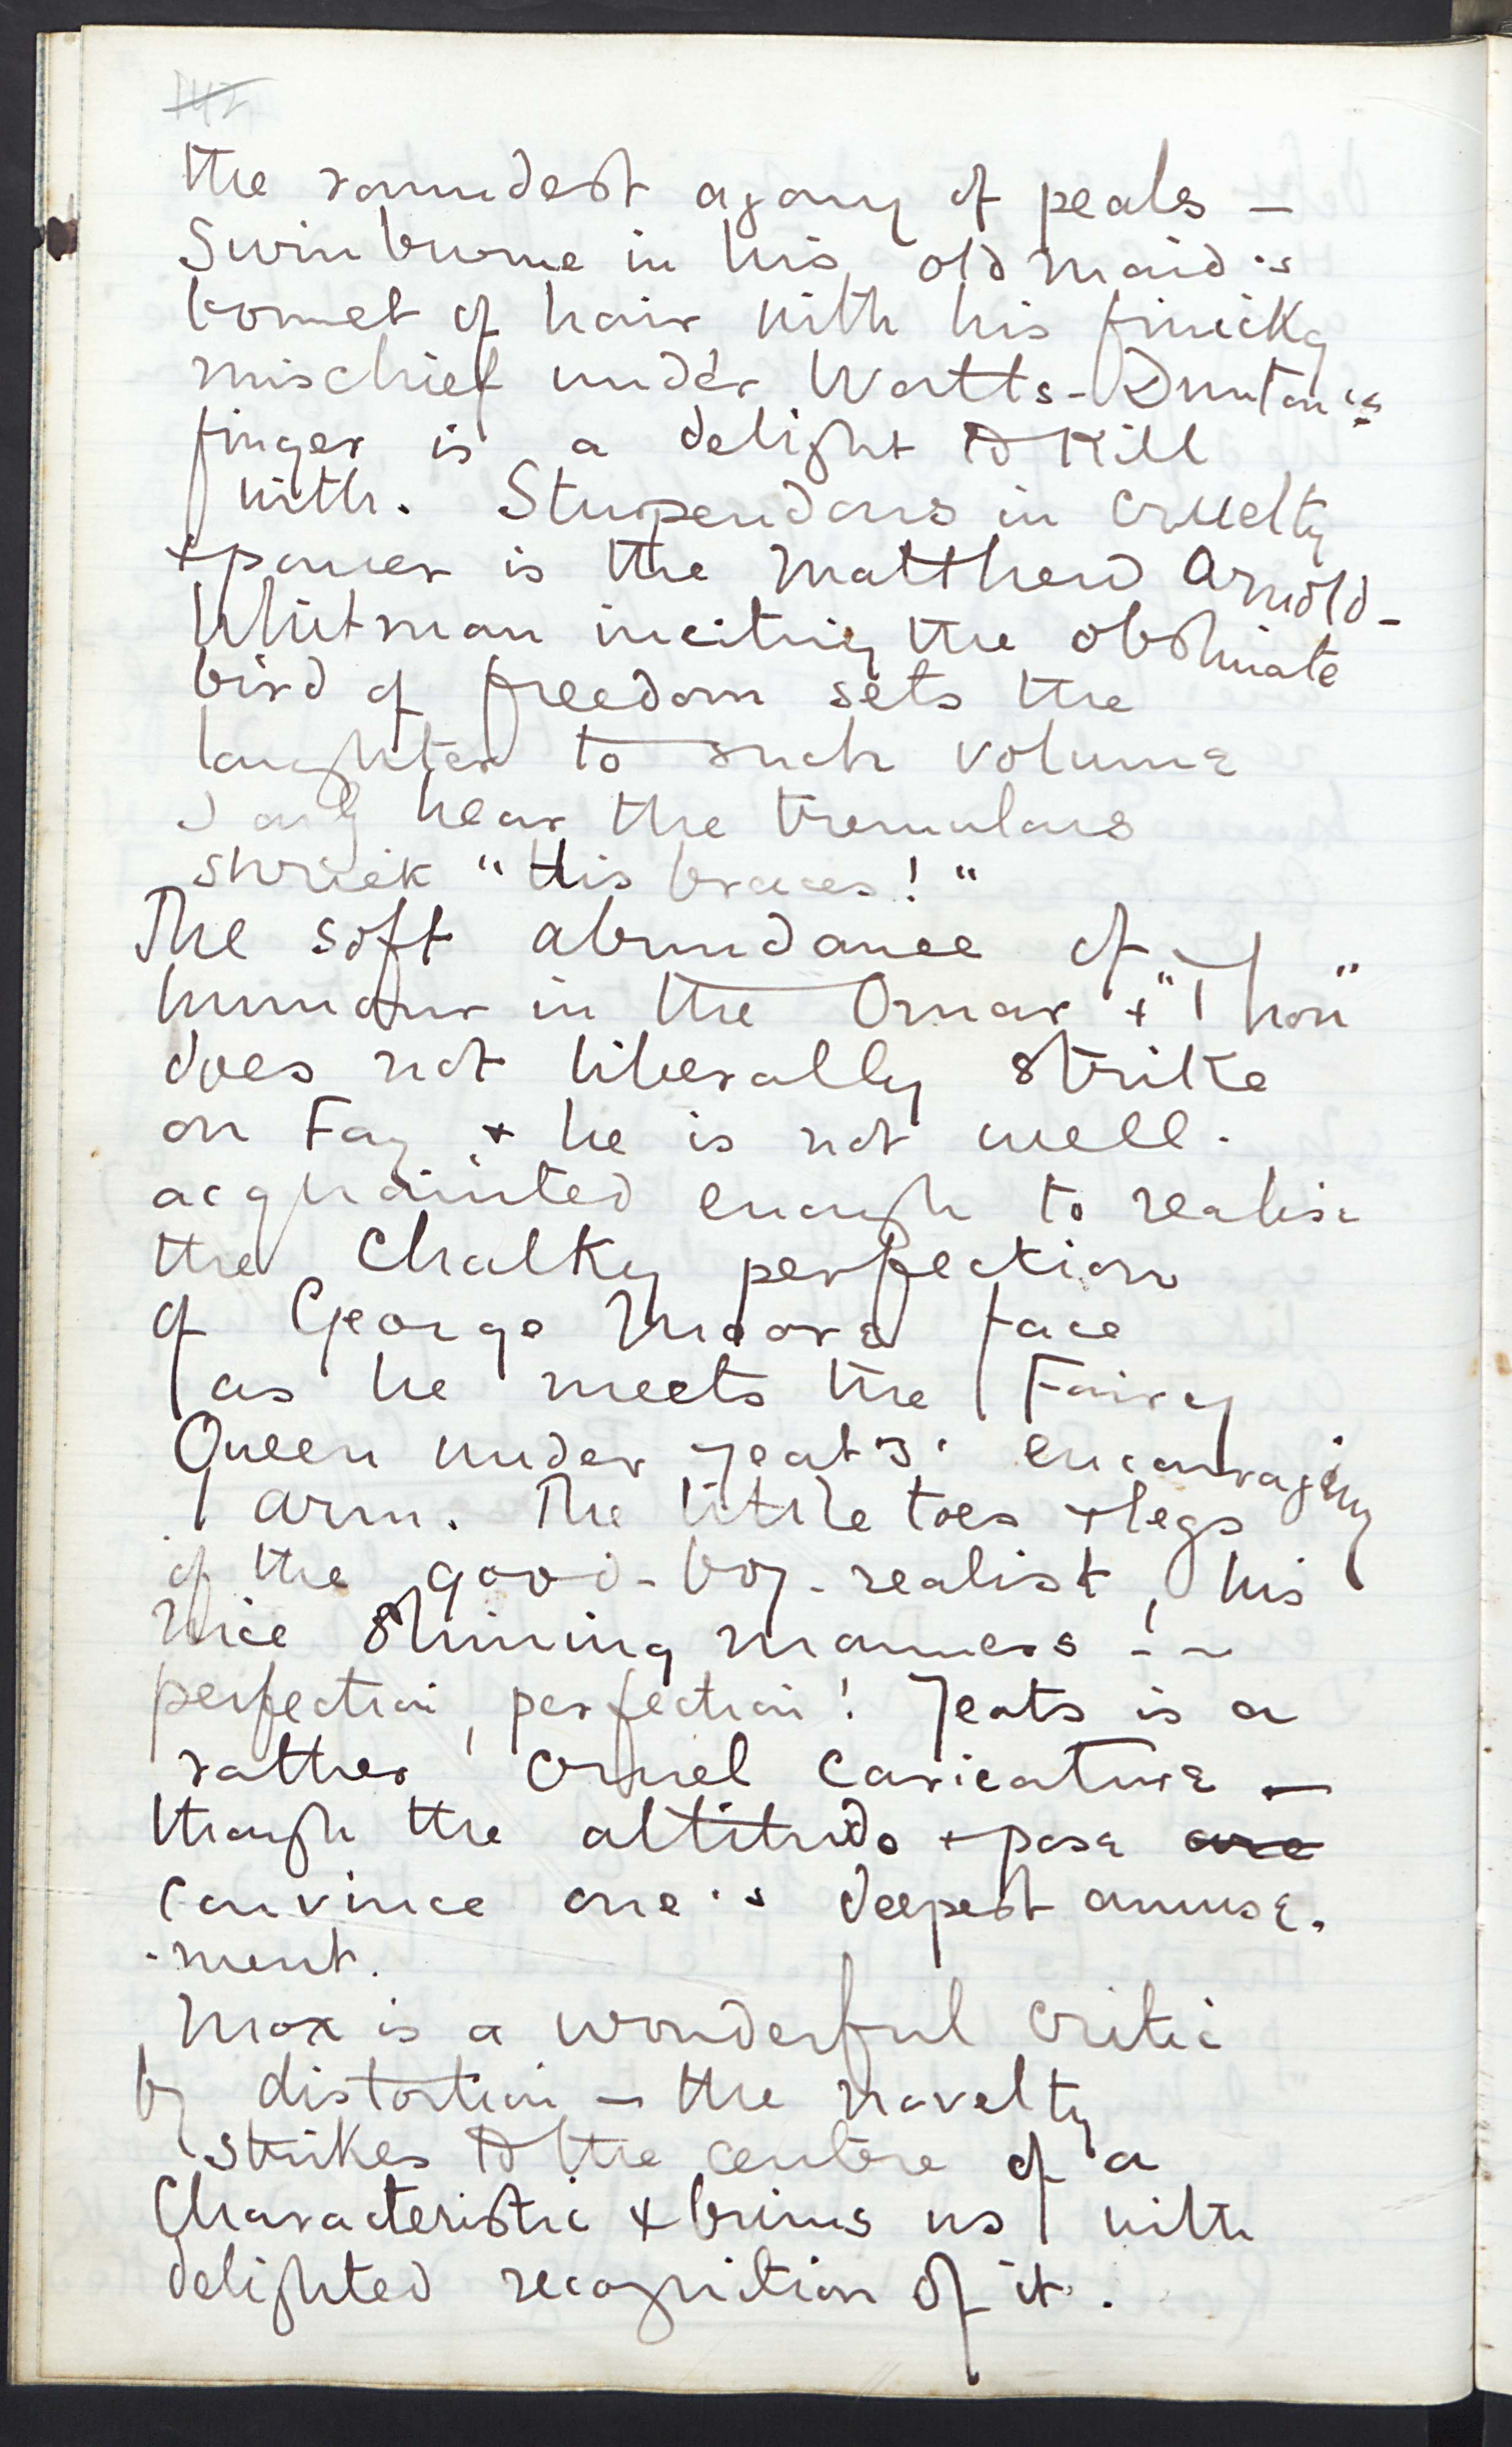 the roundest agony of peals —
Swinburne in his old maid's
bonnet of hair with his finicky
mischief under Watts-Dunton's
finger is a delight to kill
with. Stupendous in cruelty
+ power is the Matthew Arnold -
Whitman inciting the obstinate
bird of freedom sets the
laughter to such volume
I only hear the tremulous
shriek "His braces!"
The soft abundance of
humour in the Omar + "Thou"
does not liberally strike
on Fay + he is not well-
acquainted enough to realise
the chalky perfection
of George Moore's face
as he meets the Fairy
Queen under Yeats' encouraging
arm. The little toes + legs
of the good-boy-realist, his
nice shining manners - -
perfection, perfection! Yeats is a
rather cruel caricature —
though the attitude + pose are
convince one's deepest amuse-
-ment.
Max is a wonderful critic
by distortion — the novelty
strikes to the centre of a
Characteristic + brims us with
delighted recognition of it.